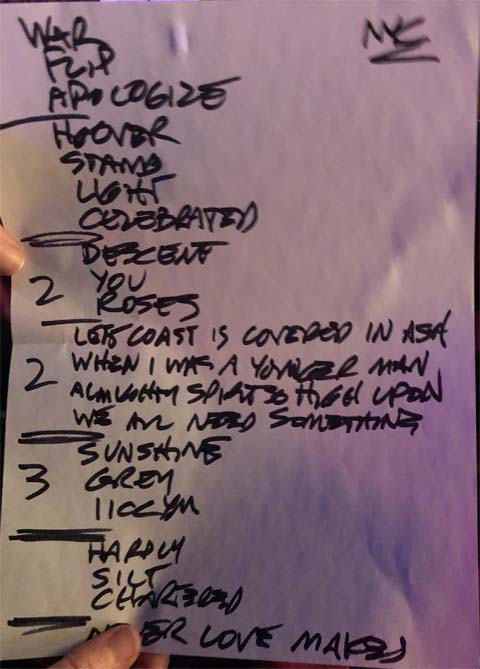 NYC
WAR
FLIP
APOLOGIZE
HOOVER
STAND
LIGHT
CELEBRATED
DESCENT
2
YOU
ROSES
LEFT COAST IS COVERED IN ASH
2
WHEN I WAS A YOUNGER MAN
ALMIGHTY SPIRITS HIGH UPON
WE ALL NEED SOMETHING
SUNSHINE
3
GREY
IICCYM
HARDLY
SILT
CHARTERED
LOVE MAKES